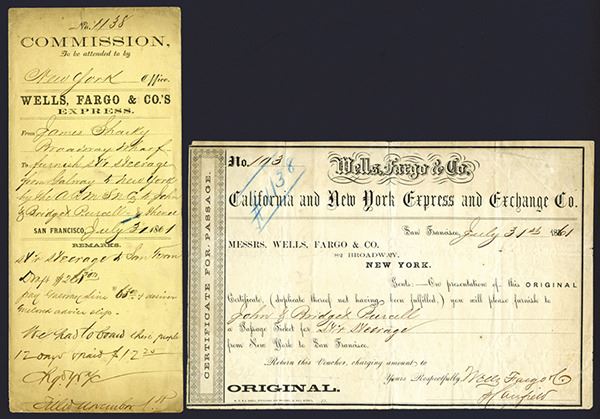 No. 1138
COMMISSION,
To be attended to by
New York Office.
WELLS, FARGO & CO.'S
EXPRESS.
From James Sharky
Broadway Wharf
To furnish Str Steerage
from Galway to New York
by the
to John
& Bridget Purcell & thence
SAN FRANCISCO, July 31 1861
REMARKS.
Str Steerage to San Fran
pay Galway line
We had to board these people
12 days & paid $12
Filed November
CERTIFICATE FOR PASSAGE.
No. 193
#1138
Wells, Fargo & Co.
California and New York Express and Exchange Co.
San Francisco, July 31st 1861
MESSRS. WELLS, FARGO & CO.
82 BROADWAY,
NEW YORK.
Gents:—On presentation of this ORIGINAL
Certificate, (duplicate thereof not having been fulfilled,) you will please furnish to
John & Bridget Purcell
a Passage Ticket for Str Steerage
from New York to San Francisco.
Return this Voucher, charging amount to
Yours Respectfully, Wells Fargo & Co
ORIGINAL.